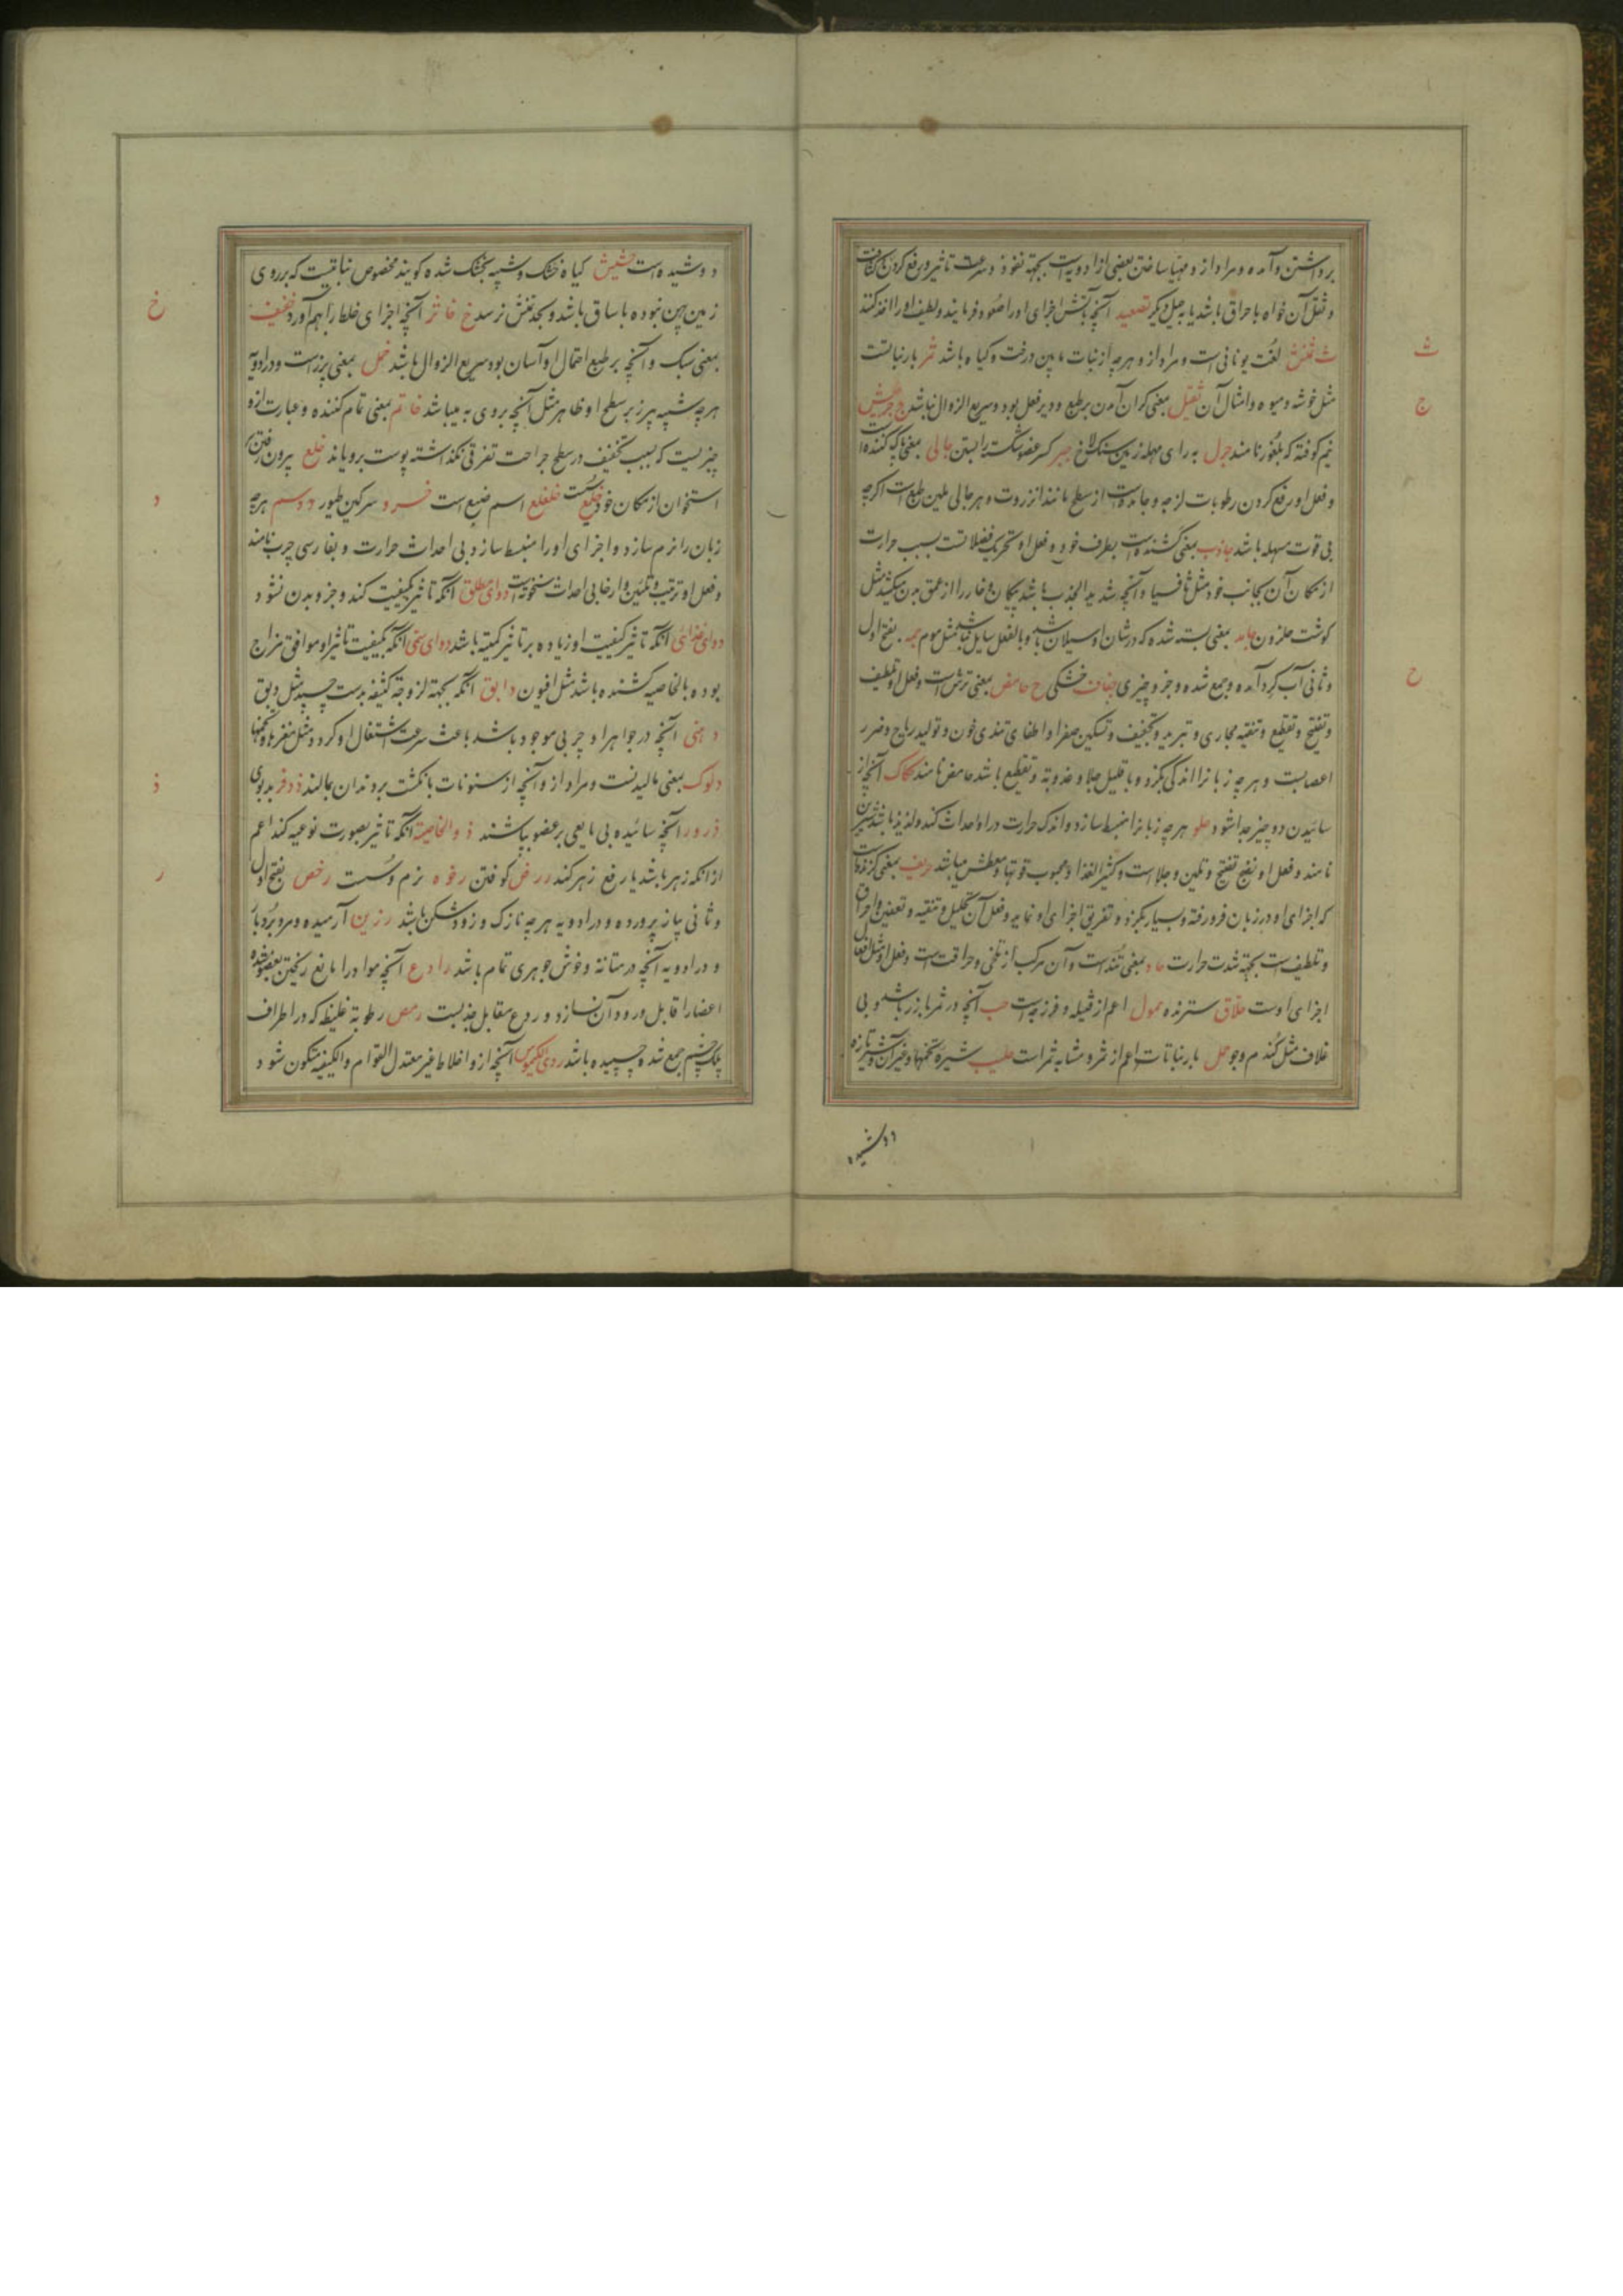 برداشتن و آمده و مراد از و مهیا ساختن بعضی از ادویه است بجهة نفوذ و سرعت تاثیر و رفع کردن
و ثقل آن خواه باحراق باشد یا بحیل دیگر تصعید آنچه بآتش اجزای او را صعود فرمایند و لطیف او را اخذ کنند
ث
ث ثمنش لغت یونانی است و مراد از و هرچه از نبات مابین درخت و گیاه باشد ثمر بار نباتست
مثل خوشه و میوه و امثال آن ثقیل بمعنی گران آمدن بر طبع و دیر فعل بود و سریع الزوال نباشد ج جریش
ج
نیم کوفته که بلغور نامند جرل به رای مهمله زمین سنگلاخ جبر کسر عضو شکسته را بستن جالی بمعنی پاک کننده است
و فعل او رفع کردن رطوبات لزجه و جامده است از سطح مانند انزروت و هر جالی ملین طبع است اگرچه
بی قوت مسهله باشد جاذب بمعنی کشنده است بطرف خود و فعل او تحریک فضلاتست بسبب حرارت
از مکان آن بجانب خود مثل ثافسیا و آنچه شدید الجذب باشد پیکان و خار را از عمق بدن میکشد مثل
گوشت حلزون جامد بمعنی بسته شده که در شان او سیلان باشد و بالفعل سایل نباشد مثل موم جمه بفتح اول
و ثانی آب گرد آمده و جمع شده و جزو چیزی جفاف خشکی ح حامض بمعنی ترش است و فعل او تلطیف
ح
و تفتیح و تقطیع و تنقیه مجاری و تبرید و تجفیف و تسکین صفرا و اطفای تندی خون و تولید ریاح و ضرر
اعصابست و هرچه زبانرا اندکی بگزد و با قلیل جلا و عذوبة و تقطیع باشد حامض نامند حکاک آنچه از
سائیدن دو چیز جدا شود حلو هرچه زبانرا منبسط سازد و اندک حرارت در او احداث کند و لذیذ باشد شیرین
نامند و فعل او نضج و تفتیح و تلیین و جلا است و کثیر الغذا و محبوب قوتها و معطش میباشد حریف بمعنی گزنده است
که اجزای او در زبان فرو رفته و بسیار بگزد و تفریق اجزای او نماید و فعل آن تحلیل و تنقیه و تعفین و احراق
و تلطیف است بجهة شدت حرارت حاد بمعنی تند است و آن مرکب از تلخی و حرافت است و فعل او مثل افعال
اجزای اوست حلاق سترنده حمول اعم از فتیله و فرزجه است حب آنچه در ثمر بازر باشد و بی
غلاف مثل گندم و جو حمل بار نباتات اعم از ثمر و مشابه ثمر است حلیب شیره تخمها و غیر آن و شیر تازه
دوشیده
دوشیده است حشیش گیاه خشک و شبیه بخشک شده گویند مخصوص نباتیست که بر روی
زمین پهن نبوده با ساق باشد و بحد تمنش نرسد خ خاثر آنچه اجزای خلط را بهم آورد خفیف
خ
بمعنی سبک و آنچه بر طبع احتمال او آسان بود سریع الزوال باشد خمل بمعنی پرز است و در ادویه
هرچه شبیه پرز بر سطح او ظاهر مثل آنچه بر روی به میباشد خاتم بمعنی تمام کننده و عبارت از و
چیزیست که بسبب تجفیف در سطح جراحت تفرقی نگذاشته پوست برویاند خلع بیرون رفتن
استخوان از مکان خود خلیع خلعلع اسم ضبع است خرو سرگین طیور د دسم هرچه
د
زبان را نرم سازد و اجزای او را منبسط سازد بی احداث حرارت و بفارسی چرب نامند
و فعل او ترتیب و تلیین و ارخا بی احداث سخونت است دوای مطلق آنکه تاثیر بکیفیت کند و جزو بدن نشود
دوای غذائی آنکه تاثیر کیفیت او زیاده بر تاثیر کمیته باشد دوای سمی آنکه بکیفیت تاثیر او موافق مزاج
بوده بالخاصیه کشنده باشد مثل افیون دابق آنکه بجهة لزوجة کثیفه بدست چسپد مثل دبق
دهنی آنچه در جواهر او چربی موجود باشد باعث سرعت اشتعال او گردد مثل مغزها و تخمها
دلوک بمعنی مالیدنست و مراد از و آنچه از سنونات بانگشت بر دندان بمالند ذ ذفر بدبوی
ذ
ذرور آنچه سائیده بی مایعی بر عضو بپاشند ذ والخاصیة آنکه تاثیر بصورت نوعیه کند اعم
از آنکه زهر باشد یا رفع زهر کند ر رض کوفتن رخوه نرم و سست رخص بفتح اول
ر
و ثانی پیاز پرورده و در ادویه هرچه نازک و زود شکن باشد رزین آرمیده و مرد بردبار
و در ادویه آنچه در متانة و خوش جوهری تمام باشد رادع آنچه مواد را مانع ریختن بعضو شده
اعضا را قابل ورود آن نسازد و ردع مقابل جذبست رمص رطوبة غلیظه که در اطراف
پلک چشم جمع شده چسپیده باشد ردی الکیموس آنچه از و اخلاط غیر معتدل القوام و الکیفیة متکون شود